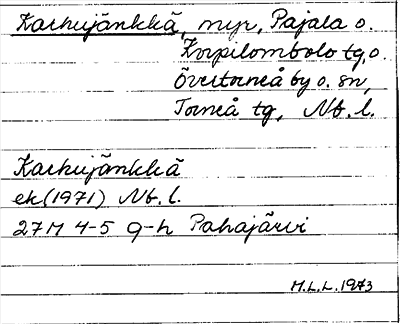 Karhujänkkä, myr, Pajala o.
Korpilombolo tg o.
Övertorneå by o. sn,
Torneå tg, Nb. l.
Karhujänkkä
ek (1971) Nb. l.
27M 4-5 g-h Pahajärvi
M.L.L. 1973